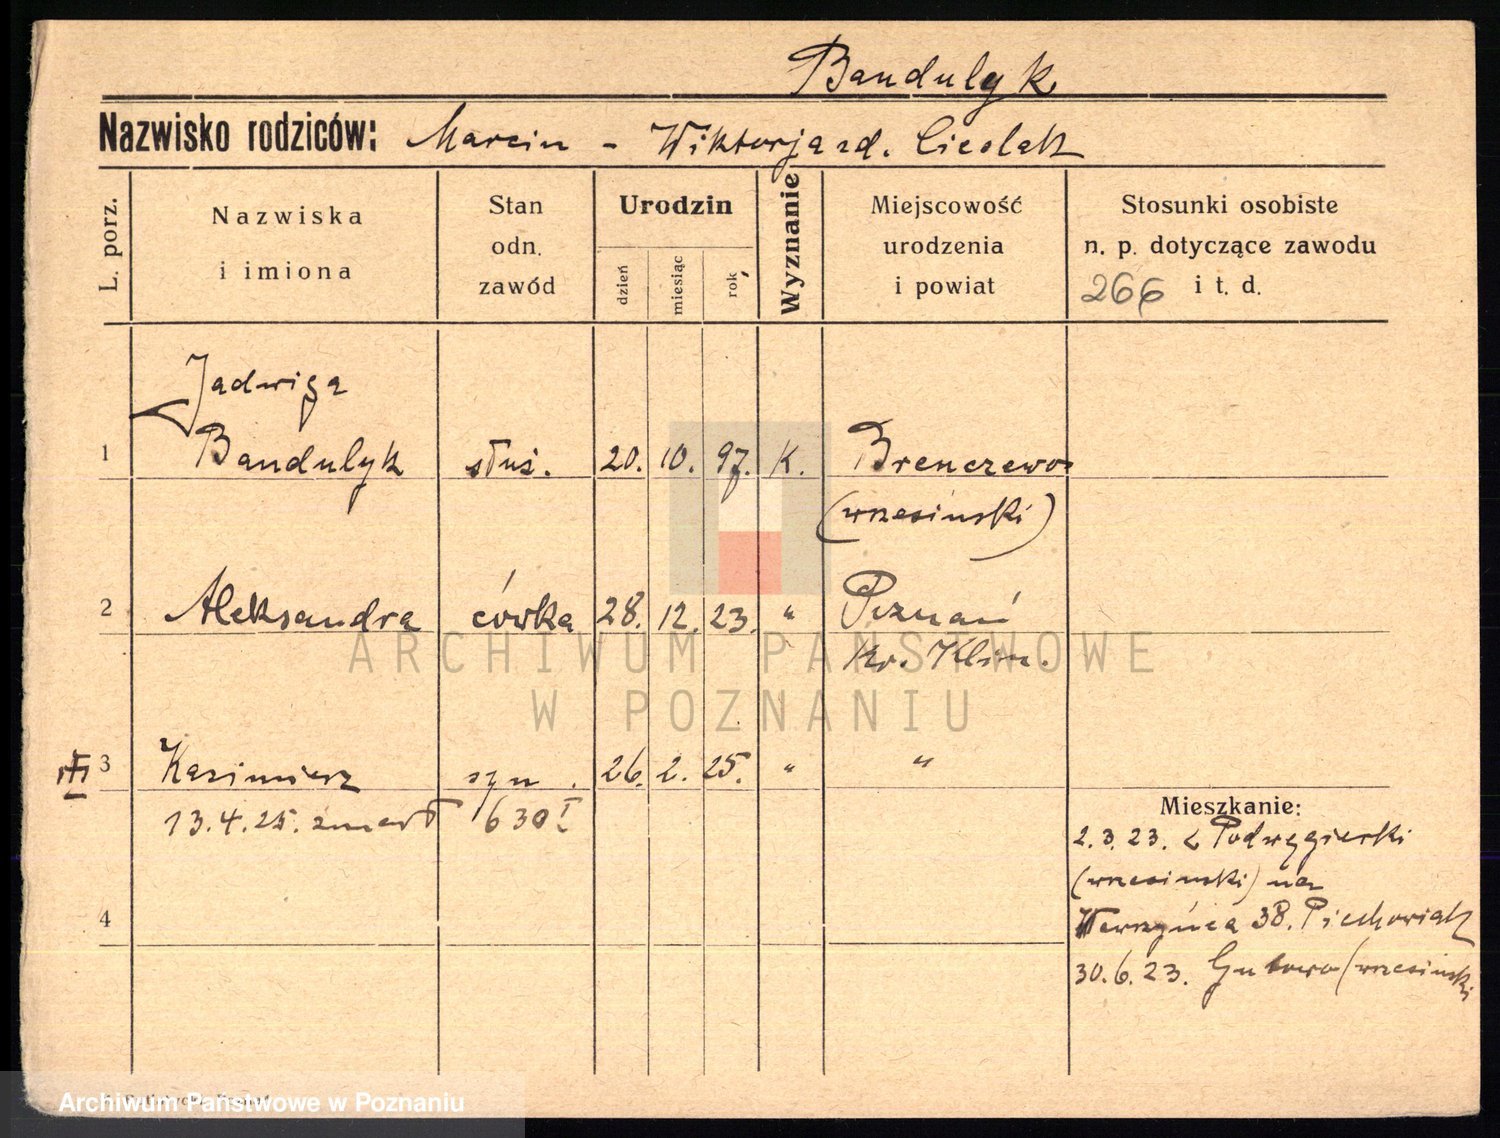 Bandulyk
Nazwisko rodziców: Marcin - Wiktorja zd. Cieslak
L. porz.
Nazwiska
i imiona
Stan
odn.
zawód
Urodzin
dzień
miesiąc
rok
Wyznanie
Miejscowość
urodzenia
i powiat
Stosunki osobiste
n. p. dotyczące zawodu
266 i t. d.
Jadwiga
1 Bandulyk służ. 20. 10. 97. K. Brenczewo
(wrzesiński)
2 Aleksandra córka 28. 12. 23. " Poznań
Kr. Klin.
3 Kazimierz syn. 26. 2. 25. " "
13.4.25. zmarł 630 I
4
Mieszkanie:
2.3.23. z Podwęgierki
(wrzesiński) na
Wawrzyńca 38. Piechowiak
30.6.23. Gutowo (wrzesiński
ARCHIWUM PAŃSTWOWE
W POZNANIU
Archiwum Państwowe w Poznaniu